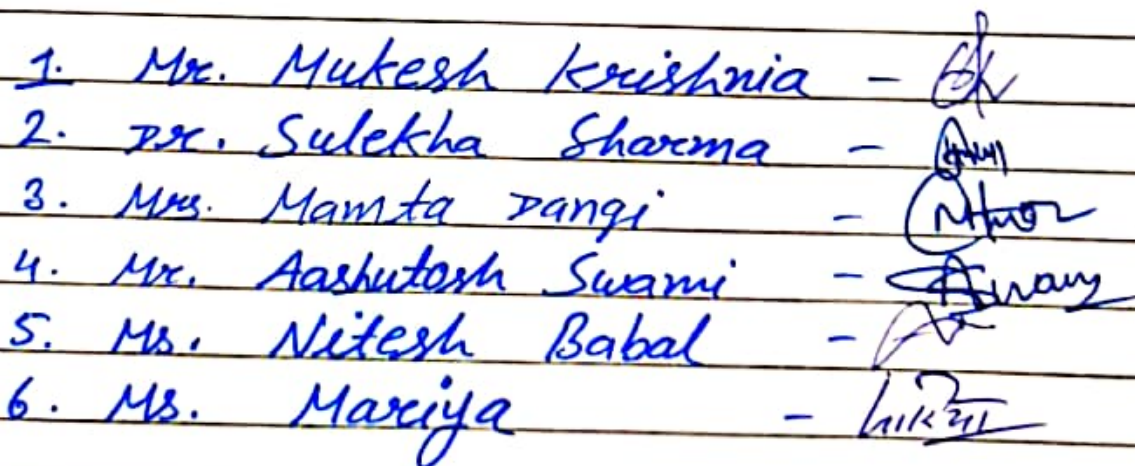 1. Mr. Mukesh Krishnia -
2. Dr. Sulekha Sharma -
3. Mrs. Mamta Dangi -
4. Mr. Aashutosh Swami -
5. Ms. Nitesh Babal -
6. Ms. Mariya -